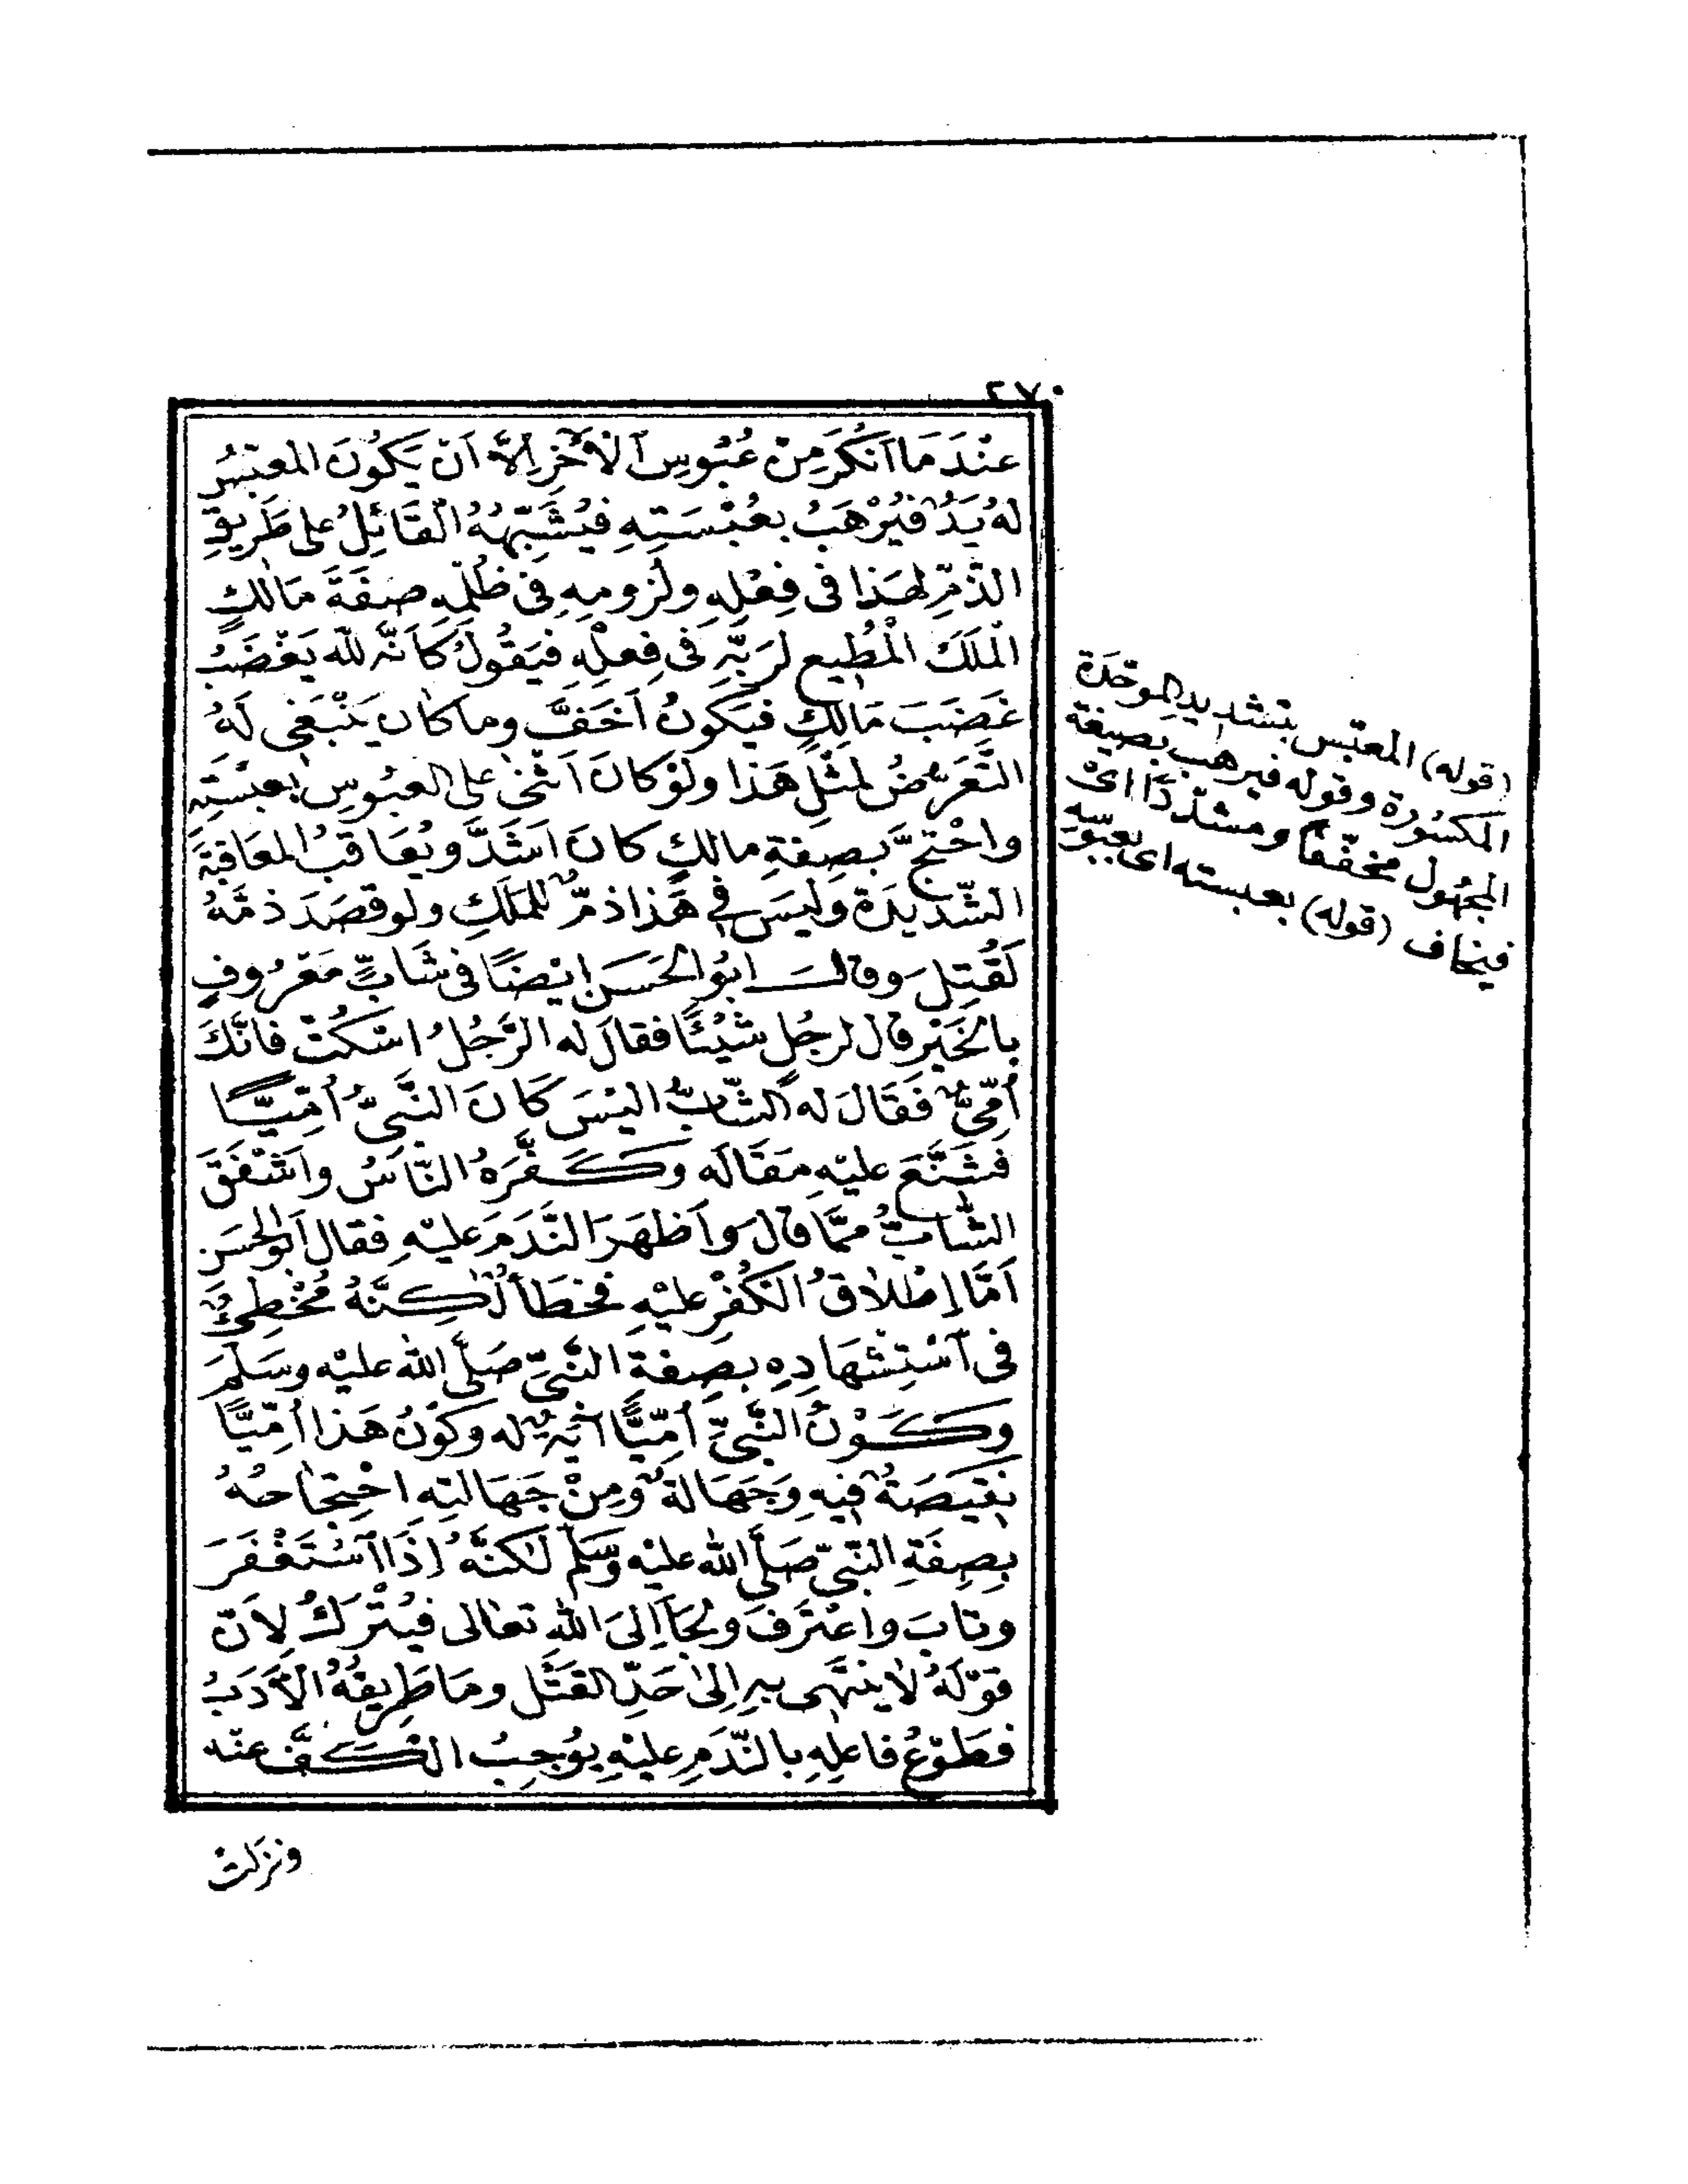 ٢٧٠
عِنْدَ مَا اَنْكَرَ مِنْ عُبُوسِ الْاٰخَرِ اِلَّا اَنْ يَكُونَ المُعَبِّسُ
لَهُ يَدٌ فَيُرْهَبُ بِعُبْسَتِهِ فَيُشَبِّهُهُ الْقَائِلُ على طَرِيقِ
الذَّمِّ لِهَذا فى فِعْلِهِ ولُزومِهِ فى ظُلْمِهِ صِفَةَ مَالِكٍ
الْمَلَكَ الْمُطِيعِ لِرَبِّهِ فى فِعلِهِ فيَقُولُ كَاَنَّه لِلّٰه يَغْضَبُ
غَضَبَ مَالِكٍ فَيَكُونُ اَخَفَّ وما كان يَنْبَغِى لَهُ
التَّعَرُّضُ لِمِثْلِ هَذا ولَوْ كانَ اَثْنَى على العَبُوسِ بِعبْسَتِهِ
واحْتَجَّ بِصِفَةِ مالكٍ كانَ اَشَدَّ ويُعَاقَبُ المُعَاقَبَةَ
الشَّدِيدَةَ وليَسَ فى هَذا ذمٌّ للمَلَكِ ولو قصَدَ ذمَّهُ
لَقُتِلَ وقال ابُو الحَسَنِ اَيْضًا فى شَابٍّ مَعْرُوفٍ
بِالْخَيْرِ قال لرجُلٍ شَيْئًا فقالَ له الرَّجُلُ اسْكُتْ فانَّكَ
اُمِّىٌّ فَقَالَ له الشَّابُّ اليْسَ كَانَ النَّبِىُّ اُمِّيًّا
فَشُنِّعَ عليْهِ مقَالُه وكَفَّرَهُ النّاسُ واَشْفَقَ
الشَّابُّ ممَّا قال واَظهَرَ النَّدَمَ عليْهِ فقال اَبُو الحَسَنِ
اَمَّا اِطْلَاقُ الْكُفْرِ عليْهِ فخَطَأٌ لٰكِنَّهُ مُخْطِئٌ
فى اسْتِشْهَادِهِ بِصِفَةِ النَّبِىِّ صَلَّى اللّٰه عليْه وسَلَّمَ
وكَوْنُ النَّبِىِّ اُمِّيًّا اٰيَةٌ له وكَوْنُ هَذا اُمِّيًّا
نَقيصَةٌ فيهِ وَجَهَالَةٌ ومِنْ جَهَالَتِهِ احْتِجَاجُهُ
بِصِفَةِ النَّبِىّ صَلَّى اللّٰه عليْه وسَلَّم لٰكِنَّهُ اِذَا اسْتَغْفَرَ
وتابَ واعْتَرَفَ ولَجَأَ اِلىَ اللّٰه تعالى فيُتْرَكُ لِاَنَّ
قوْلَهُ لا ينتَهِى بهِ اِلىٰ حَدِّ القَتْلِ ومَا طَرِيقُهُ الْاَدَبُ
فطَوْعُ فاعِلِهِ بالنَّدَمِ عليْهِ يُوجِبُ الكَفَّ عنْه
ونزلتْ
(قوله) المعبّس بتشديد الموحَّدة
المكسورة وقوله فيرهب بصيغة
المجهول مخفّفاً ومشدّدًا اىْ
فيخاف (قوله) بعبسته اى بعبُوسِه